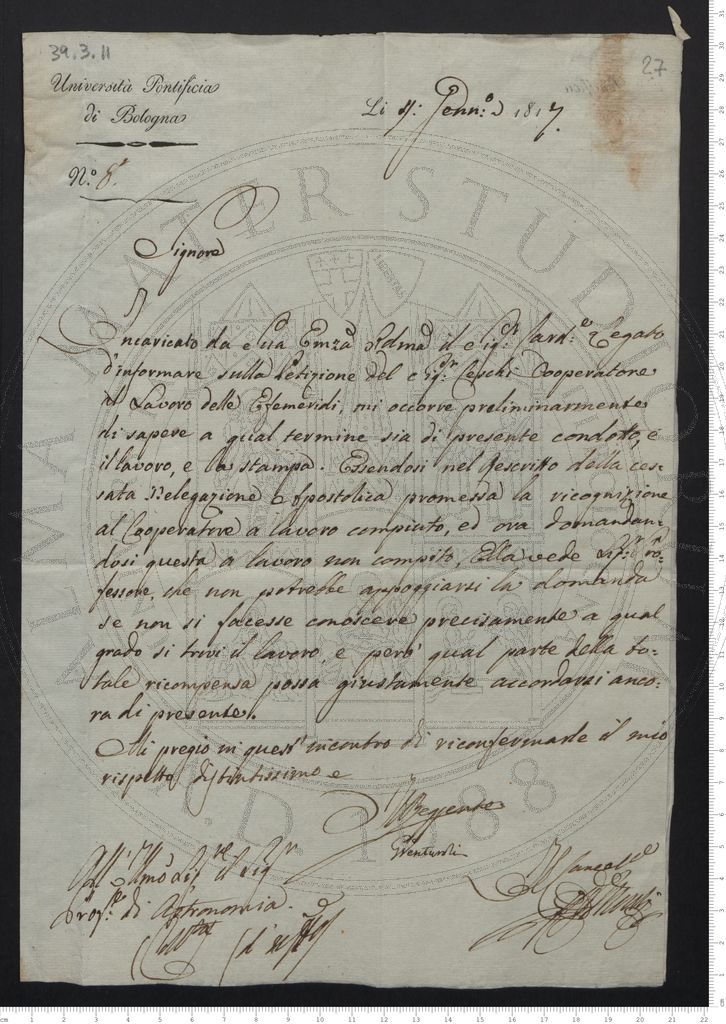 39.3.11
27
Università Pontificia
di Bologna
Li 11: Genn:o 1817.
N.o 8.
Signore
Incaricato da Sua Emza Rdma il Sig:r Card:e Legato
d'informare sulla Petizione del Sig:r Ceschi Cooperatore
al Lavoro delle Efemeridi, mi occorre preliminarmente
di sapere a qual termine sia di presente condotto, e
il lavoro, e la stampa. Essendosi nel Rescritto della ces-
sata Delegazione Apostolica promessa la ricognizione
al Cooperatore a lavoro compiuto, ed ora domandan-
dosi questa a lavoro non compito, Ella vede Sig:r Pro-
fessore, che non potrebbe appoggiarsi la domanda
se non si facesse conoscere precisamente a qual
grado si trovi il lavoro, e però qual parte della to-
tale ricompensa possa giustamente accordarsi anco-
ra di presente.
Mi pregio in quest'incontro di riconfermarle il mio
rispetto distintissimo e
Il Reggente
GVenturoli
All' Illmo Sig.re il Sig.r
Prof.re di Astronomia.
Il Cancell.e
ALMA MATER STUDIORUM
A.D. 1088